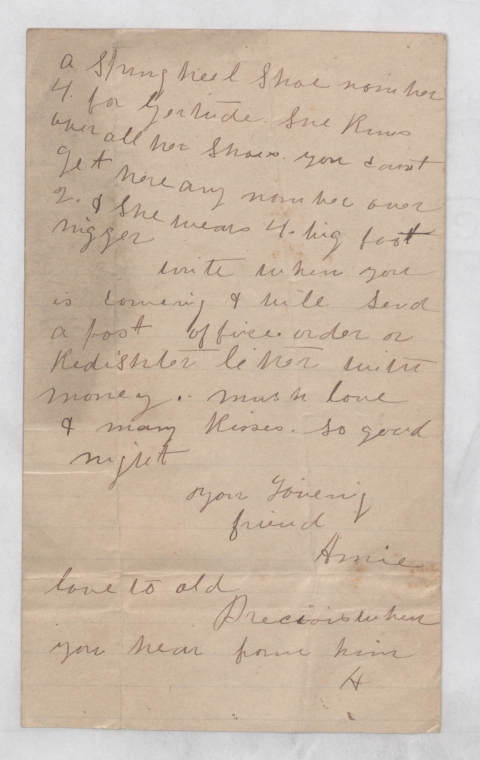 a Spring heel Shoe nomber
4. for Gertrude. She Runs
over all her Shoes. you cant
get here any nomber over
2. & She wears 4. big foot
nigger
write when you
is comeing & will Send
a post office order or
Redishter letter with
money .. mush love
& many Kisses. So good
night
your loveing
friend
Amie
love to old
Precious when
you hear from him
H